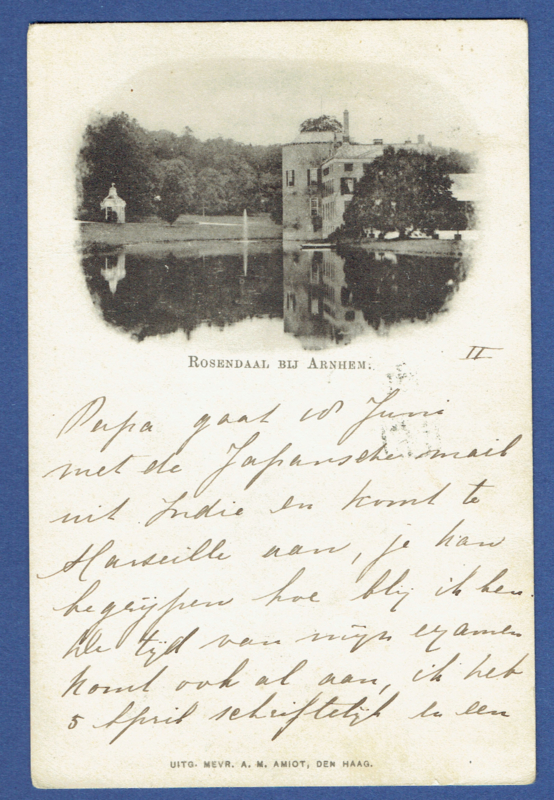 ROSENDAAL BIJ ARNHEM.
II
Papa gaat 18 Juni
met de Japansche mail
uit Indie en komt te
Marseille aan, je kan
begrijpen hoe blij ik ben.
De tijd van mijn examen
komt ook al aan, ik heb
5 April schriftelijk en een
UITG. MEVR. A. M. AMIOT, DEN HAAG.